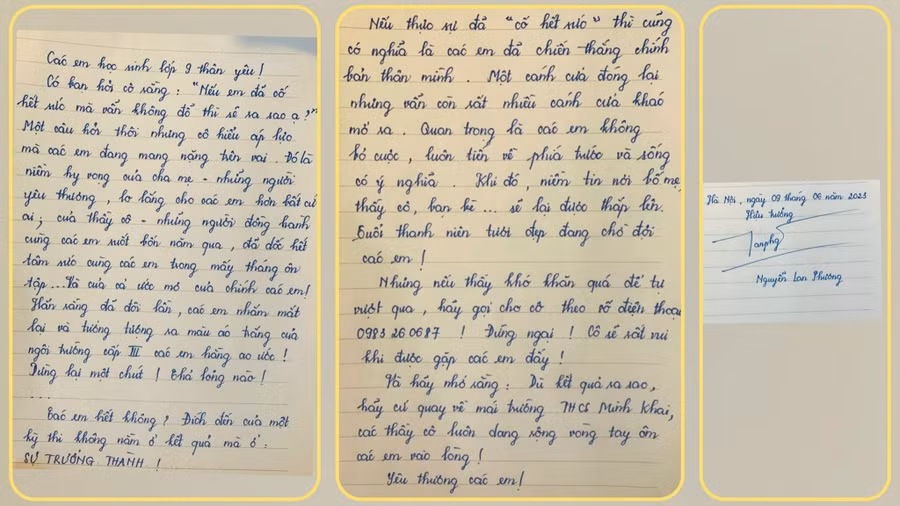 Các em học sinh lớp 9 thân yêu!
Có bạn hỏi cô rằng: "Nếu em đã cố
hết sức mà vẫn không đỗ thì sẽ ra sao ạ?"
Một câu hỏi thôi nhưng cô hiểu áp lực
mà các em đang mang nặng trên vai. Đó là
niềm hy vọng của cha mẹ - những người
yêu thương, lo lắng cho các em hơn bất cứ
ai; của thầy cô - những người đồng hành
cùng các em suốt bốn năm qua, đã dốc hết
tâm sức cùng các em trong mấy tháng ôn
tập... Và của cả ước mơ của chính các em!
Hẳn rằng đã đôi lần, các em nhắm mắt
lại và tưởng tượng ra màu áo trắng của
ngôi trường cấp III các em hằng ao ước!
Dừng lại một chút! Thả lỏng nào!
....
Các em biết không? Đích đến của một
kỳ thi không nằm ở kết quả mà ở:
SỰ TRƯỞNG THÀNH!
Nếu thực sự đã "cố hết sức" thì cũng
có nghĩa là các em đã chiến thắng chính
bản thân mình. Một cánh cửa đóng lại
nhưng vẫn còn rất nhiều cánh cửa khác
mở ra. Quan trọng là các em không
bỏ cuộc, luôn tiến về phía trước và sống
có ý nghĩa. Khi đó, niềm tin nơi bố mẹ,
thầy cô, bạn bè ... sẽ lại được thắp lên.
Tuổi thanh niên tươi đẹp đang chờ đợi
các em!
Nhưng nếu thấy khó khăn quá để tự
vượt qua, hãy gọi cho cô theo số điện thoại
0983260687! Đừng ngại! Cô sẽ rất vui
khi được gặp các em đấy!
Và hãy nhớ rằng: Dù kết quả ra sao,
hãy cứ quay về mái trường THCS Minh Khai,
các thầy cô luôn dang rộng vòng tay ôm
các em vào lòng!
Yêu thương các em!
Hà Nội, ngày 09 tháng 06 năm 2023
Hiệu trưởng
Nguyễn Lan Phương